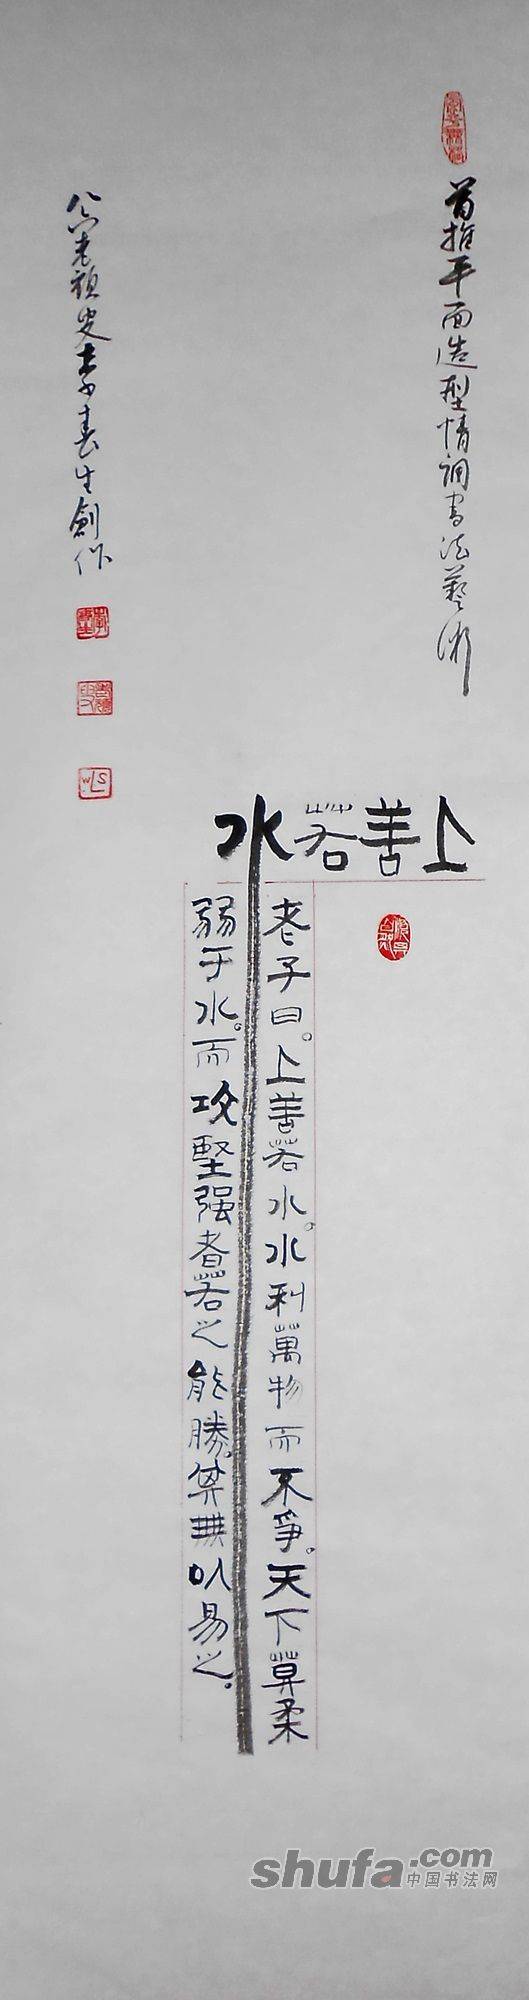 首推平面造型情調書法藝術
上善若水
老子曰。上善若水。水利萬物而不爭。天下莫柔
弱于水。而攻堅强者若之能勝。其無以易之。
老頑叟李春生創作
shufa.com
中国书法网